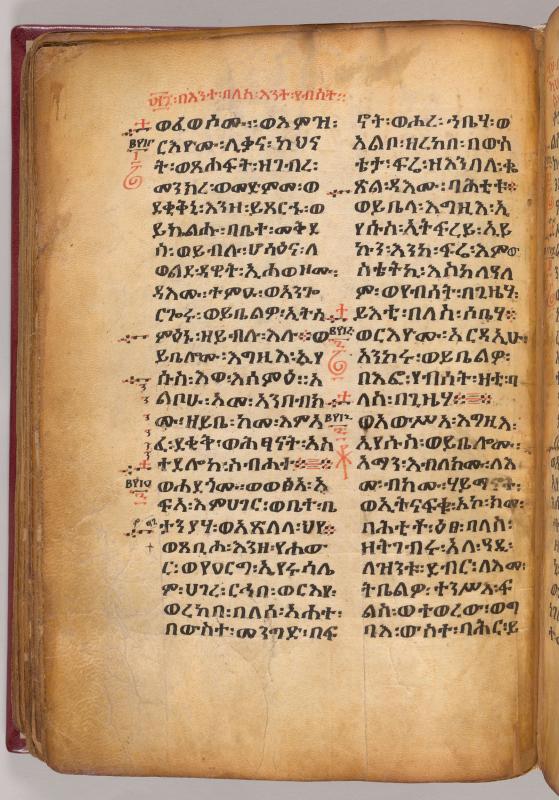 በእንተ፡በለስ፡እንተ፡የብሰት፡፡
ወፈወሶሙ፡፡ወእምዝ፡
ርእዮሙ፡ሊቃና፡ካህና
ት፡ወጸሐፍት፡ዘገብረ፡
መንክረ፡ወመድምመ፡ወ
ደቂቅኒ፡እንዘ፡ይጸርሑ፡ወ
ይኬልሑ፡በቤተ፡መቅደ
ስ፡ወይብሉ፡ሆሳዕና፡ለ
ወልደ፡ዳዊት፡ኢሐወዞሙ፡
ዳእሙ፡ተምዑ፡ወአንጐ
ርጐሩ፡ወይቤልዎ፡ኢትሰ
ምዕኑ፡ዘይብሉ፡እሉ፡ወ
ይቤሎሙ፡እግዚእ፡ኢየ
ሱስ፡እወ፡እሰምዕ፡፡አ
ልቦሁ፡አመ፡አንበብክ
ሙ፡ዘይቤ፡ከመ፡እምአ
ፈ፡ደቂቅ፡ወሕፃናት፡አስ
ተደሎከ፡ስብሐተ፡፡
ወኀደጎሙ፡ወወፅአ፡አ
ፍአ፡እምሀገር፡ወቤተ፡ቢ
ታንያሃ፡ወአጽለለ፡ህየ፡፡
ወጸቢሖ፡እንዘ፡የሐው
ር፡ወየዐርግ፡ኢየሩሳሌ
ም፡ሀገረ፡ርኅበ፡ወርእየ፡
ወረከበ፡በለሰ፡አሐተ፡
በውስተ፡መንገድ፡በፍ
ኖት፡ወሖረ፡ኀቤሃ፡ወ
አልቦ፡ዘረከበ፡በውስ
ቴታ፡ፍሬ፡ዘእንበለ፡ቈ
ጽል፡ዳእሙ፡ባሕቲቱ፡፡
ወይቤላ፡እግዚእ፡ኢ
የሱስ፡ኢትፍረይ፡ኢይ
ኩን፡እንከ፡ፍሬ፡እምው
ስቴትኪ፡እስከ፡ለዓለ
ም፡ወየብሰት፡በጊዜሃ፡
ይእቲ፡በለስ፡ሶቤሃ፡፡
ወርእዮሙ፡አርዳኢሁ፡
አንከሩ፡ወይቤልዎ፡
በእፎ፡የብሰት፡ዛቲ፡በ
ለስ፡በጊዜሃ፡፡
ወአውሥአ፡እግዚእ፡
ኢየሱስ፡ወይቤሎሙ፡
አማን፡እብለክሙ፡ለእ
መ፡ብክሙ፡ሃይማኖት፡
ወኢትናፍቁ፡አኮ፡ከመ፡
ባሕቲቶ፡ዕፀ፡በለስ፡
ዘትገብሩ፡አላ፡ዓዲ፡
ለዝንቱ፡ደብር፡ለእመ፡
ትቤልዎ፡ተንሥእ፡ፍ
ልስ፡ወተወረው፡ወግ
ባእ፡ውስተ፡ባሕር፡ይ